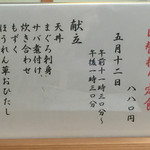 日替わり定食
八八〇円
五月十二日
午前十一時三〇分〜
午後一時三〇分
献立
天丼
まぐろ刺身
サバ煮付け
炊き合わせ
もずく
ほうれん草おひたし